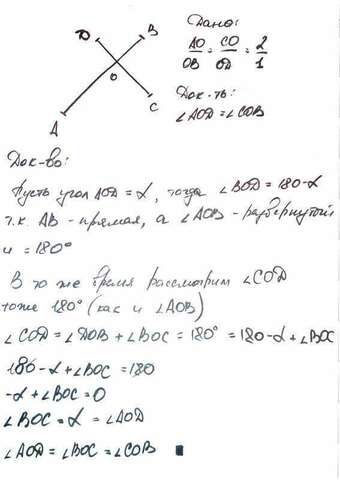 D
B
O
A
C
Дано:
AO/OB = CO/OD = 2/1
Док-ть:
∠AOD = ∠COB
Док-во:
Пусть угол AOD = α, тогда ∠BOD = 180-α
т.к. AB - прямая, а ∠AOB - развернутый
и = 180°
В то же время рассмотрим ∠COD
тоже 180° (как и ∠AOB)
∠COD = ∠DOB + ∠BOC = 180° = 180-α + ∠BOC
180-α + ∠BOC = 180
-α + ∠BOC = 0
∠BOC = α = ∠AOD
∠AOD = ∠BOC = ∠COB ■